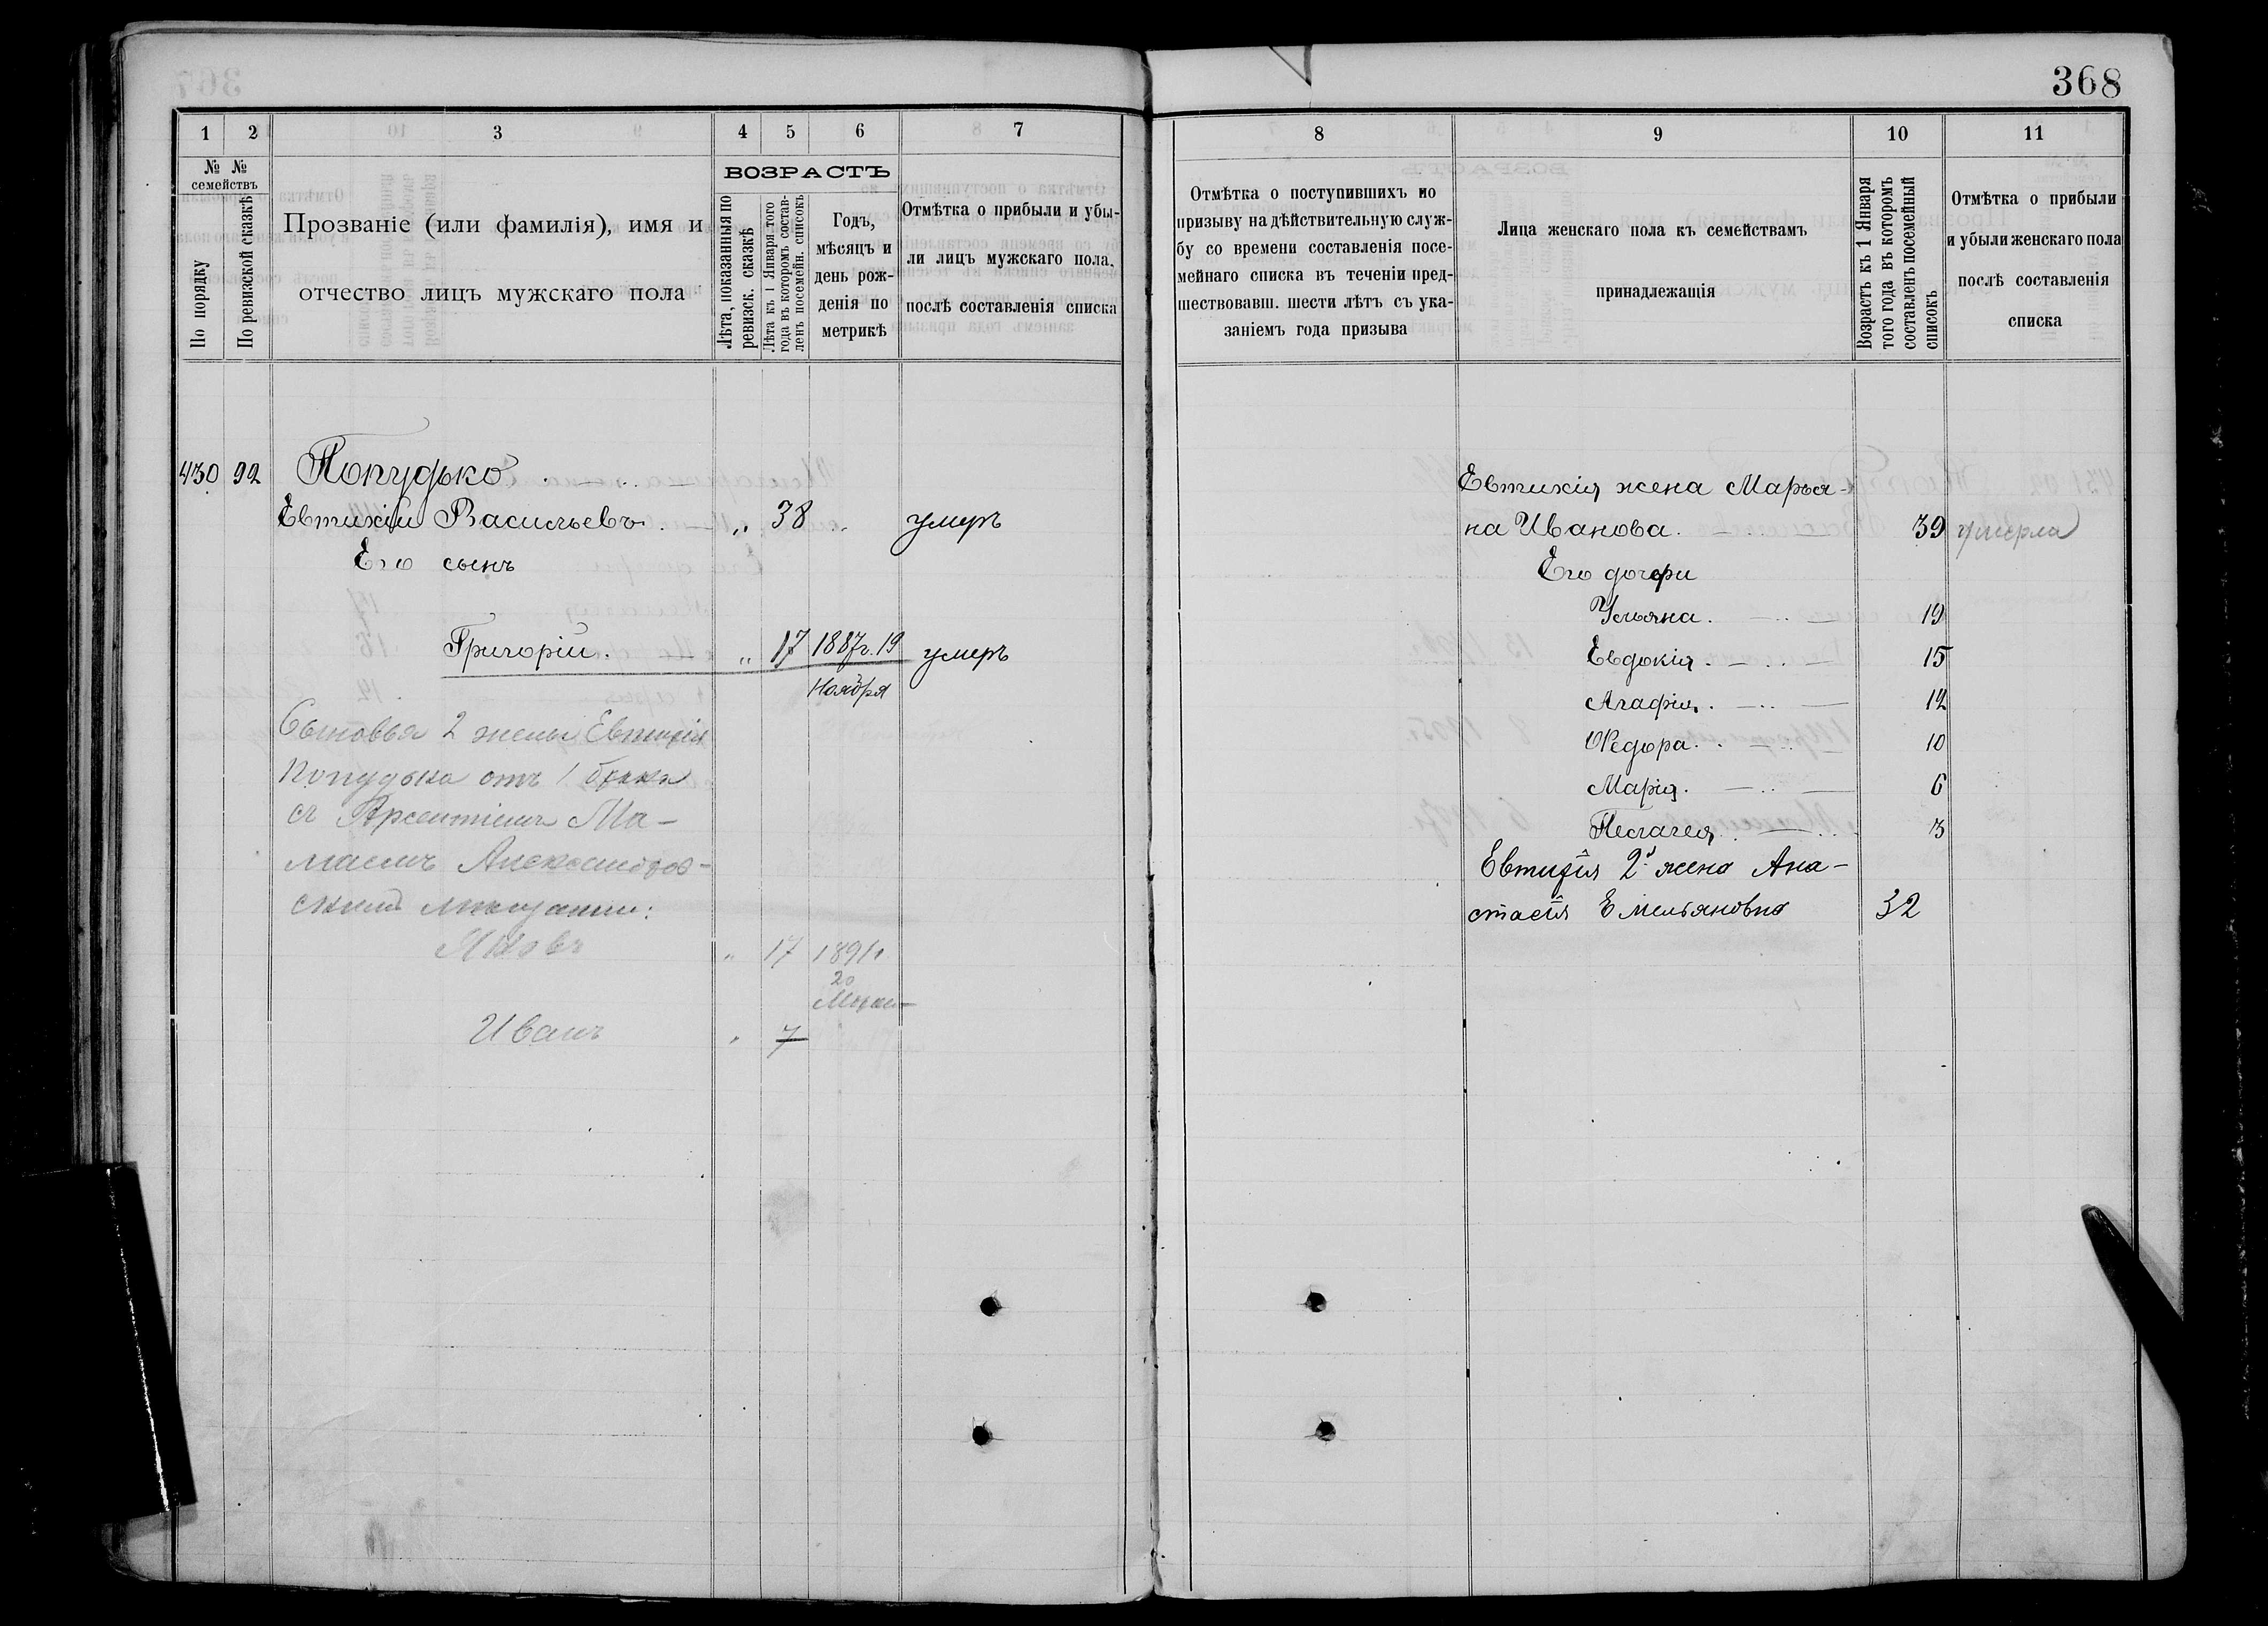 368
1 2 3 4 5 6 7
№ № семействъ
По порядку
По ревизской сказкѣ
Прозваніе (или фамилія), имя и
отчество лицъ мужскаго пола
ВОЗРАСТЪ
Лѣта, показанныя по
ревизск. сказкѣ
Лѣта къ 1 Января того
года въ которомъ состав-
ленъ посемейн. списокъ
Годъ,
мѣсяцъ и
день рож-
денія по
метрикѣ
Отмѣтка о прибыли и убы-
ли лицъ мужскаго пола,
послѣ составленія списка
430 92 Попудько
Евтихій Васильевъ. „ 38 умеръ
Его сынъ
Григорій. „ 17 1887г. 19 умеръ
Ноября
Сыновья 2 жены Евтихія
Попудька отъ 1 брака
съ Арсентіемъ Ма-
маемъ Александров-
скимъ
Яковъ „ 17 1891
20
Иванъ „ 7
8 9 10 11
Отмѣтка о поступившихъ по
призыву на дѣйствительную служ-
бу со времени составленія посе-
мейнаго списка въ теченіи пред-
шествовавш. шести лѣтъ съ ука-
заніемъ года призыва
Лица женскаго пола къ семействамъ
принадлежащія
Возрастъ къ 1 Января
того года въ которомъ
составленъ посемейный
списокъ
Отмѣтка о прибыли
и убыли женскаго пола
послѣ составленія
списка
Евтихія жена Марья-
на Иванова. 39 умерла
Его дочери
Ульяна. 19
Евдокія. 15
Агафія. 12
Ѳедора. 10
Марія. 6
Пелагея. 3
Евтихія 2я жена Ана-
стасія Емельяновна 32